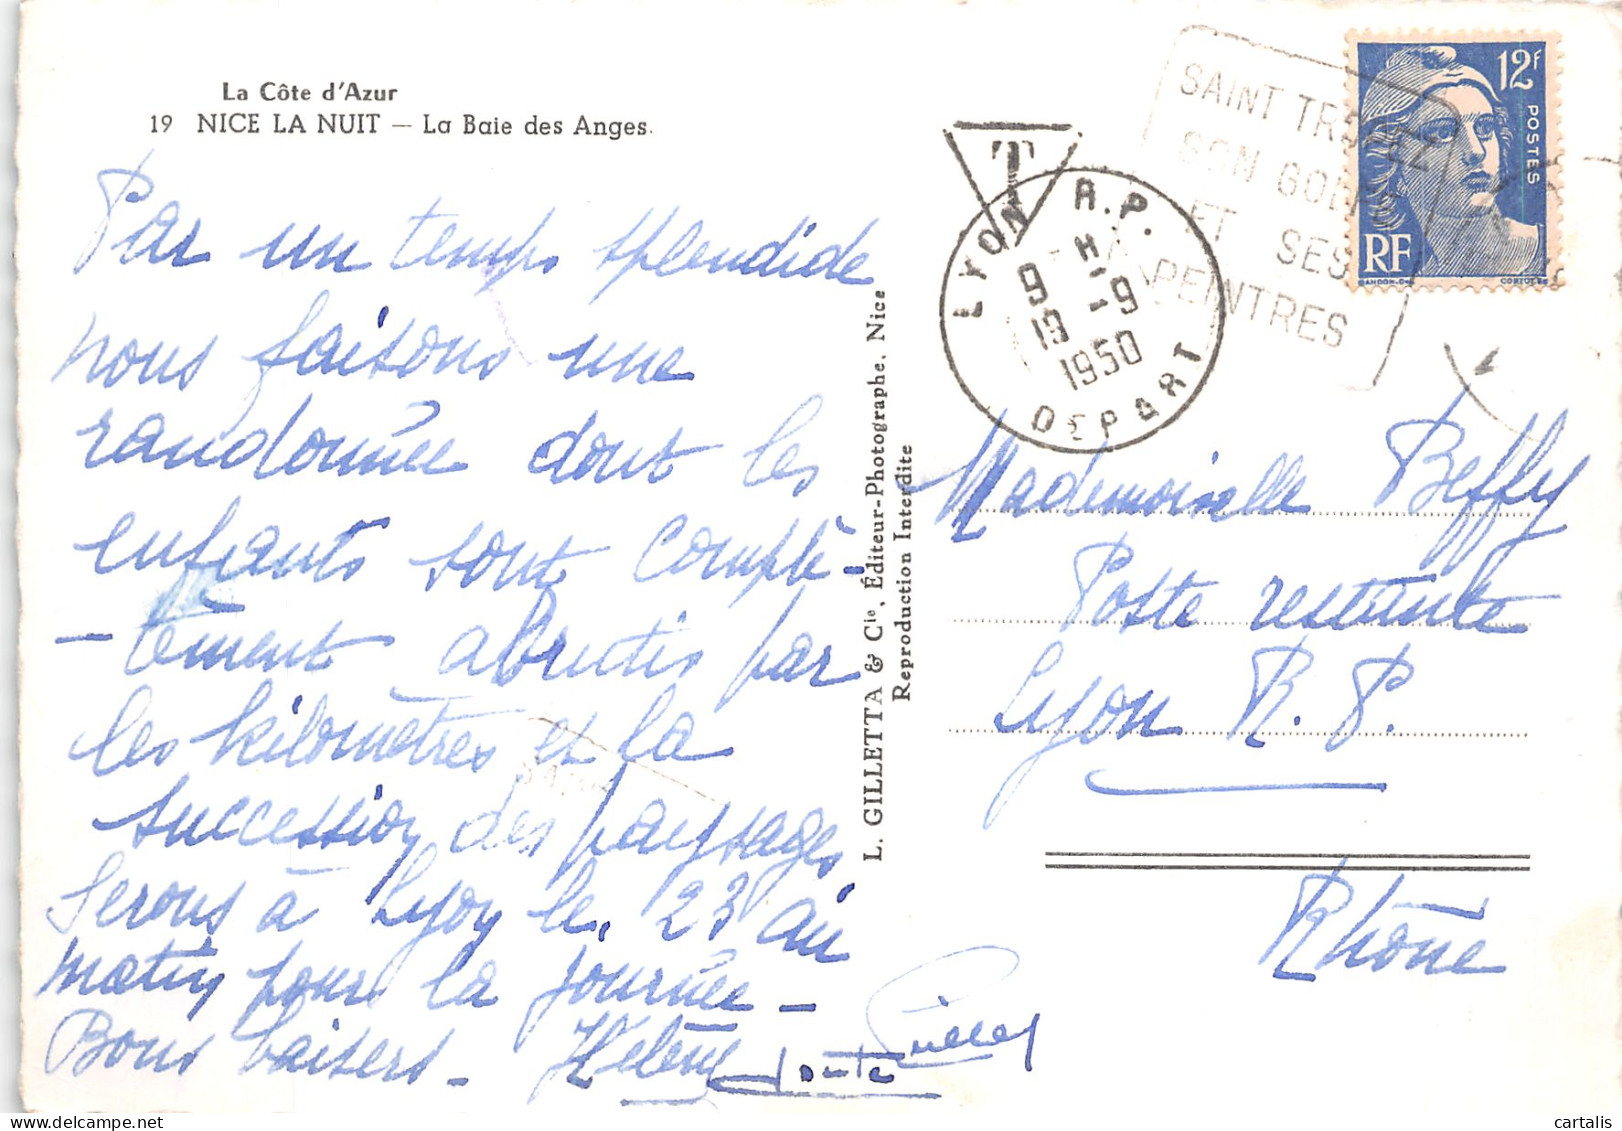 La Côte d'Azur
19 NICE LA NUIT — La Baie des Anges.
Par un temps splendide
nous faisons une
randonnée dont les
enfants sont complè-
-tement abrutis par
les kilomètres et la
succession des paysages
Serons à Lyon le 23 au
matin pour la journée -
Bons baisers - Hélène
L. GILLETTA & Cie, Éditeur-Photographe, Nice
Reproduction Interdite
T
LYON R.P.
9 H
19 -9
1950
DEPART
SAINT TROPEZ
SON GOLFE
ET SES
PEINTRES
12F
POSTES
RF
GANDON
CORTOT
Mademoiselle Beffy
Poste restante
Lyon R. P.
Rhône
cartalis
www.delcampe.net